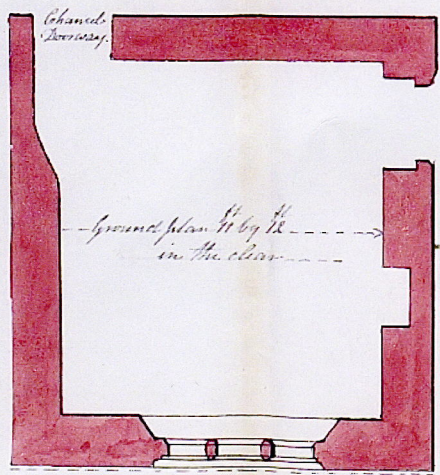 Chancel
Doorway.
Ground plan 11 ft by 12 ft
in the clear